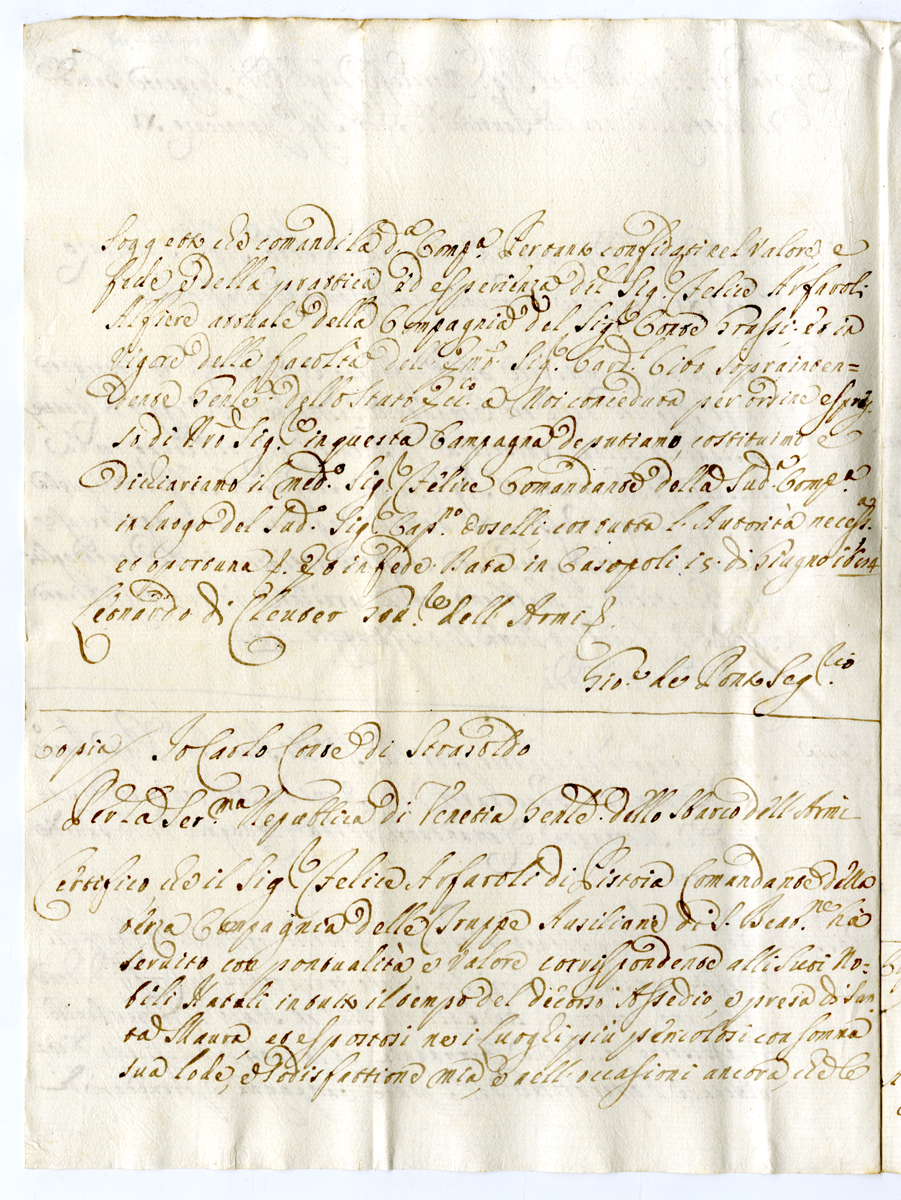 Soggetto che comandi la d.ᵃ Comp.ᵃ Pertanto confidati nel Valore e
fede e della prattica ed esperienza del Sig.ʳ Felice Arfaroli
Alfiere attuale della Compagnia del Sig.ʳ Conte Grassi. Et in
vigore della facoltà dell' Em.ᵒ Sig.ʳ Card.ˡ Cibo Soprainten=
dente Gen̄le. dello Stato Ecc.ᶜᵒ a Noi conceduta per ordine espres
so di Nr̄o Sig.ʳᵉ in questa Campagna deputiamo, costituimo e
dichiariamo il med.ᵒ Sig.ʳ Felice Comandante della Sud.ᵃ Comp.ᵃ
in luogo del Sud.ᵒ Sig.ʳ Cap.ⁿᵒ Toselli con tutta l'Autorità necess.ᵃ
et oportuna. Et in fede. Data in Casopoli 15. di Giugno 1684
Leonardo di Cleuter dell'Armi
Gio.ᵉ de Ponte Seg.ʳⁱᵒ
Copia / Io Carlo Conte di Strasoldo
Per la Ser.ᵐᵃ Republica di Venetia Gen̄le. dello Sbarco dell'Armi
Certifico che il Sig.ʳ Felice Arfaroli di Pistoia Comandante della
terza Compagnia delle Truppe Ausiliarie di S. Beat.ⁿᵉ hà
servito con pontualità e Valore corrispondente alli Suoi No-
bili Natali in tutto il tempo del décorso Assedio, e presa di San
ta Maura et espostosi ne i luoghi più pericolosi con somma
sua lode, e sodisfattione mia, e nell'occasioni ancora, che